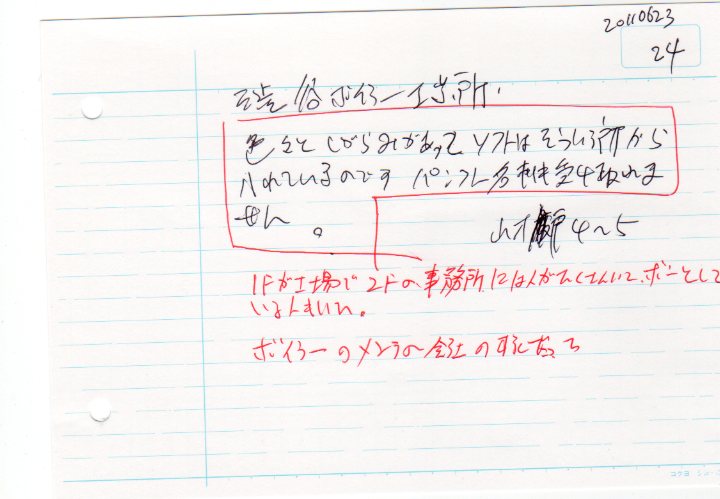 20110623
24
渋谷ボイラー工場所.
色々としがらみがあって ソフトはそういう所から
入れているのです パンフレ名刺受け取れま
せん。
4〜5
1Fが工場で2Fの事務所には人がたくさんいて、ボーとして
いる人もいた。
ボイラーのメンテの会社の